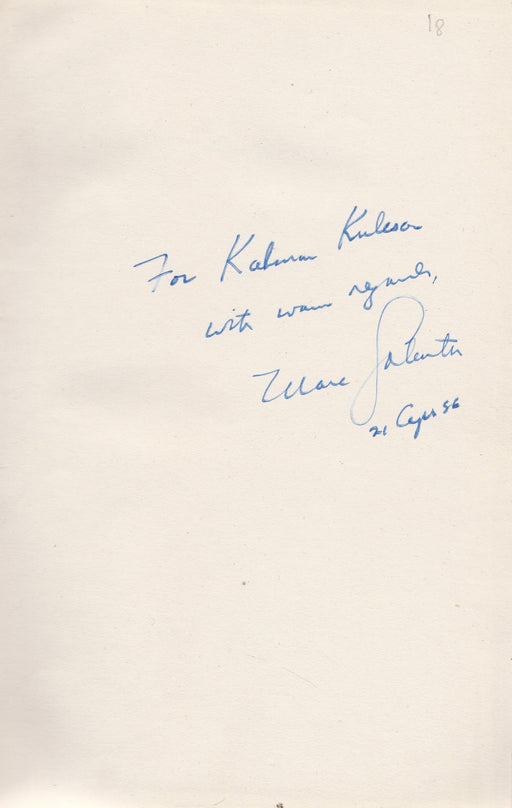 18
For Kalman
with warm regards,
Marc
21 Apr 56